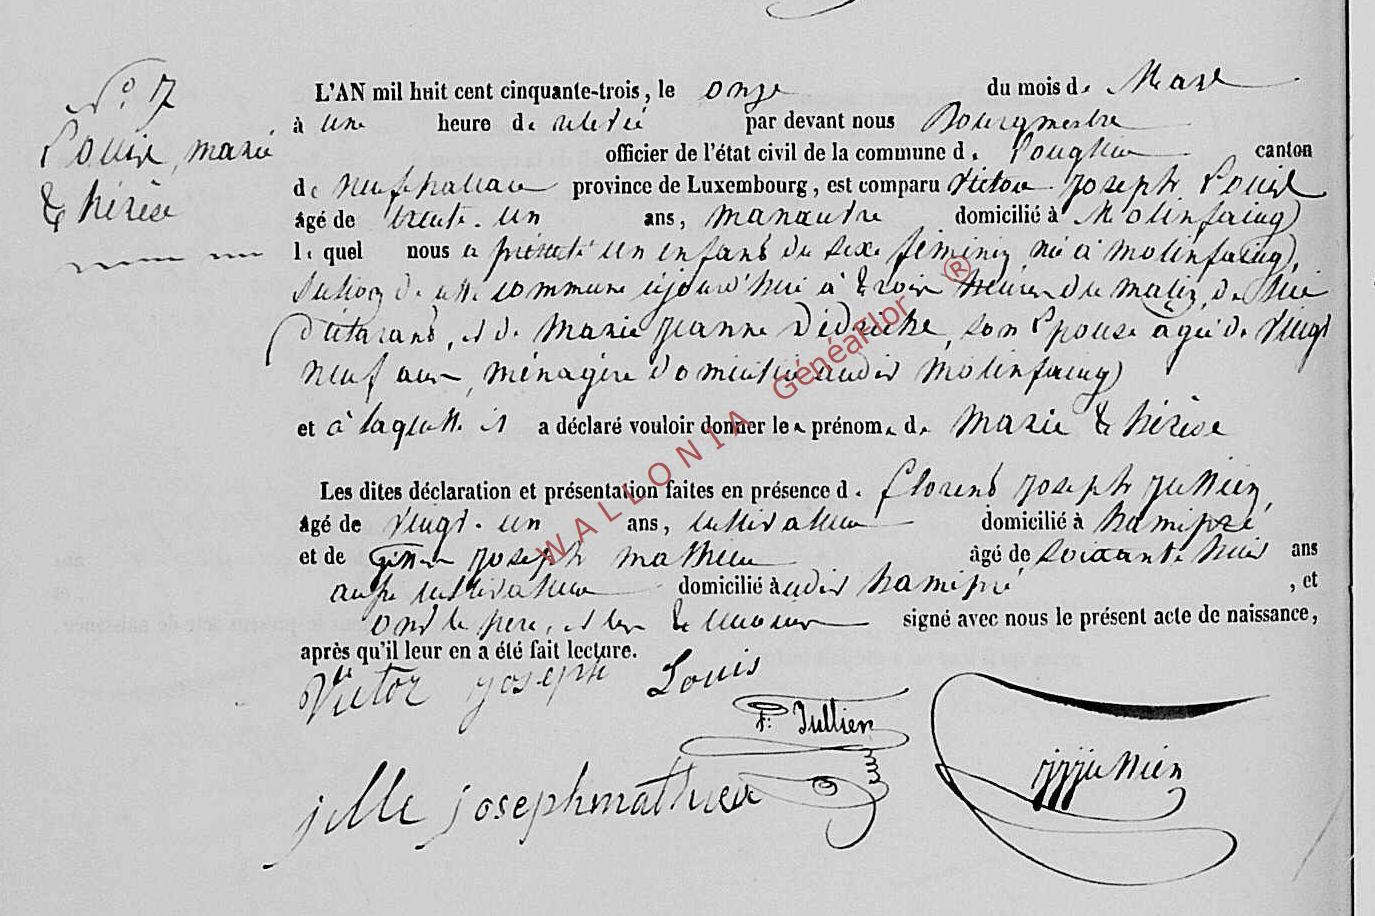 N° 17
Louis, marie
Thérèse
L'AN mil huit cent cinquante-trois, le onze du mois de Mars
à une heure de relevé par devant nous Bourgmestre
officier de l'état civil de la commune de Longlier canton
de Neufchateau province de Luxembourg, est comparu Victor Joseph Louis
âgé de trente-un ans, manœuvre domicilié à Molinfaing
lequel nous a présenté un enfant du sexe féminin, né à molinfaing,
Section de cette commune ajourd'hui à trois heures du matin, de lui
déclarant, et de Marie Jeanne son Epouse agée de Vingt
Neuf ans, ménagère domiciliée audit Molinfaing
et à laquelle il a déclaré vouloir donner les prénoms de Marie Thérèse
Les dites déclaration et présentation faites en présence de Florent Joseph Jullien,
âgé de Vingt-un ans, cultivateur domicilié à hamipré
et de Joseph Mathieu âgé de soixante huit ans
aussi cultivateur domicilié audit hamipré, et
ont le père, et les témoins signé avec nous le présent acte de naissance,
après qu'il leur en a été fait lecture.
Victor Joseph Louis
F. Jullien
jullien
joseph mathieu
WALLONIA GénéaFlor ®